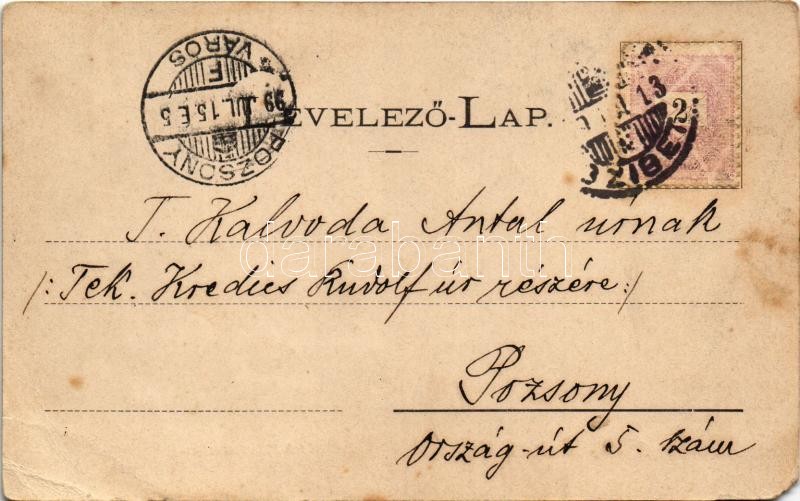 POZSONY
F VÁROS
99 JUL. 15. E. 5
EVELEZŐ-LAP.
13
2
T. Kalvoda Antal úrnak
darabanth
/: Tek. Kredics Rudolf úr részére :/
Pozsony
Ország-út 5. szám